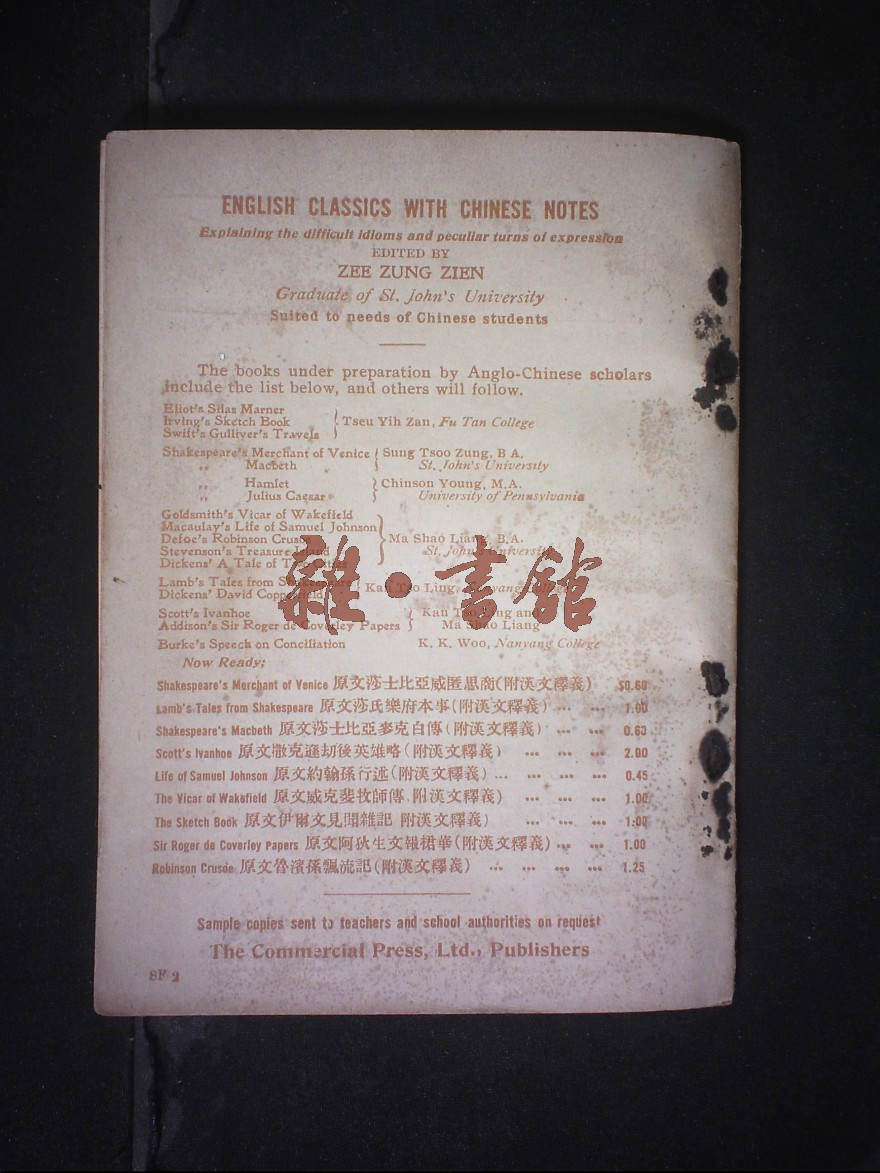 ENGLISH CLASSICS WITH CHINESE NOTES
Explaining the difficult idioms and peculiar turns of expression
EDITED BY
ZEE ZUNG ZIEN
Graduate of St. John's University
Suited to needs of Chinese students
The books under preparation by Anglo-Chinese scholars
include the list below, and others will follow.
Eliot's Silas Marner
Irving's Sketch Book
Swift's Gulliver's Travels
Tseu Yih Zan, Fu Tan College
Shakespeare's Merchant of Venice
„ Macbeth
Sung Tsoo Zung, B A.
St. John's University
„ Hamlet
„ Julius Caesar
Chinson Young, M.A.
University of Pennsylvania
Goldsmith's Vicar of Wakefield
Macaulay's Life of Samuel Johnson
Defoe's Robinson Crusoe
Stevenson's Treasure Island
Dickens' A Tale of Two Cities
Ma Shao Liang, B.A.
St. John's University
Lamb's Tales from Shakespeare
Dickens' David Copperfield
Kan Tso Ling, Nanyang College
Scott's Ivanhoe
Addison's Sir Roger de Coverley Papers
Kan Tso Ling and
Ma Shao Liang
Burke's Speech on Conciliation K. K. Woo, Nanyang College
Now Ready;
Shakespeare's Merchant of Venice 原文莎士比亞威匿思商(附漢文釋義) $0.60
Lamb's Tales from Shakespeare 原文莎氏樂府本事(附漢文釋義) ... ... 1.00
Shakespeare's Macbeth 原文莎士比亞麥克白傳(附漢文釋義) ... ... 0.60
Scott's Ivanhoe 原文撒克遜劫後英雄略(附漢文釋義) ... ... ... 2.00
Life of Samuel Johnson 原文約翰孫行述(附漢文釋義) ... ... ... ... 0.45
The Vicar of Wakefield 原文威克斐牧師傳(附漢文釋義) ... ... ... 1.00
The Sketch Book 原文伊爾文見聞雜記(附漢文釋義) ... ... ... 1.00
Sir Roger de Coverley Papers 原文阿狄生文報捃華(附漢文釋義) ... ... 1.00
Robinson Crusoe 原文魯濱孫飄流記(附漢文釋義) ... ... ... ... 1.25
Sample copies sent to teachers and school authorities on request
The Commercial Press, Ltd., Publishers
8F 2
雜·書館